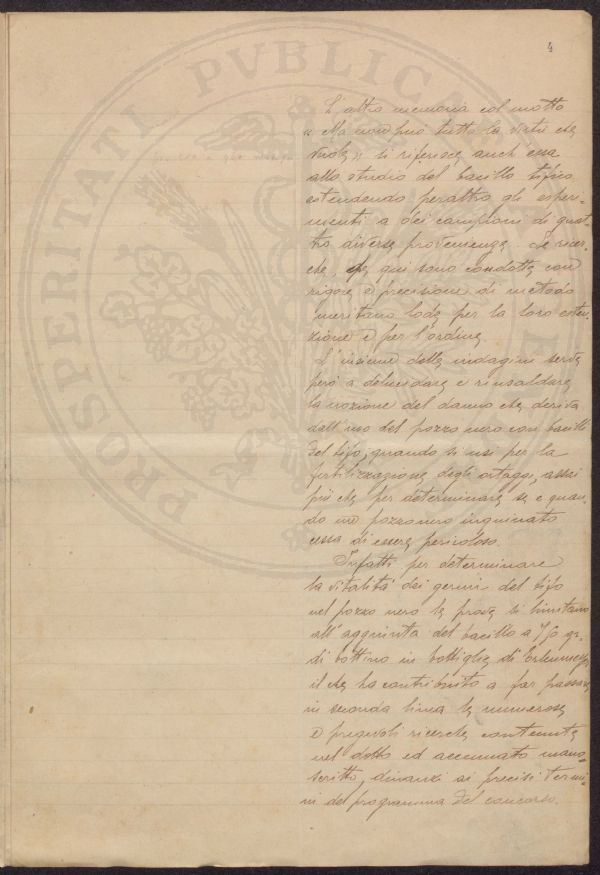 4
L'altra memoria col motto
« Ma non può tutto la virtù che
vuole » si riferisce anch'essa
allo studio del bacillo tifico
estendendo peraltro gli esperi-
menti a dei campioni di quat-
tro diverse provenienze. Le ricer-
che, che qui sono condotte con
rigore e precisione di metodo
meritano lode per la loro esten-
zione e per l'ordine.
L'insieme delle indagini serve
però a delucidare e rinsaldare
la nozione del danno che deriva
dall'uso del pozzo nero con bacilli
del tifo, quando si usi per la
fertilizzazione degli ortaggi, assai
più che per determinare se e quan-
do un pozzo nero inquinato
cessa di essere pericoloso.
Infatti per determinare
la vitalità dei germi del tifo
nel pozzo nero le prove si limitano
all'aggiunta del bacillo a 750 gr.
di bottino in bottiglie di Erlenmeyer
il che ha contribuito a far passare
in seconda linea le numerose
e pregevoli ricerche contenute
nel dotto ed accurato mano-
scritto, dinanzi ai precisi termi-
ni del programma del concorso.
PROSPERITATI PVBLICAE